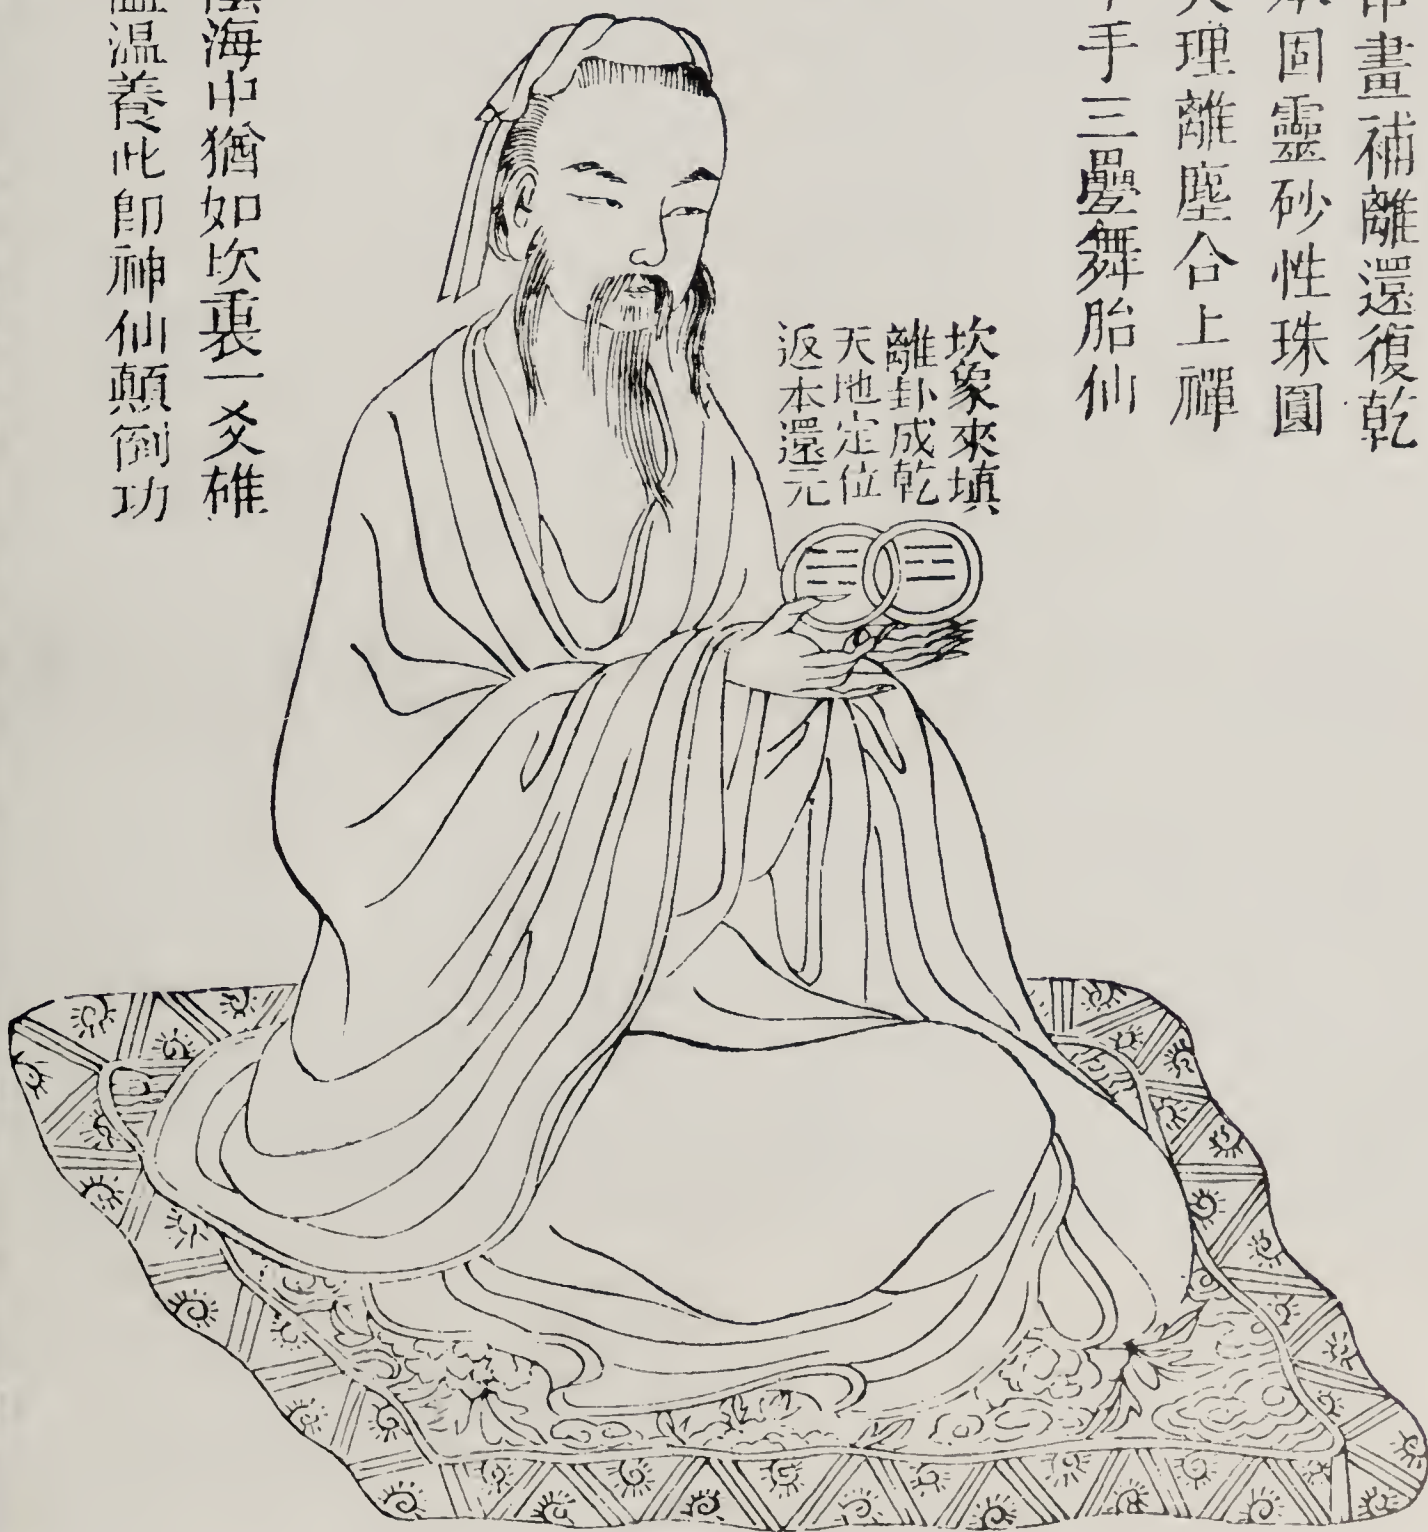 畫補離還復乾
固靈砂性珠圓
理離塵合上禪
手三疊舞胎仙
坎象來填
離卦成乾
天地定位
返本還元
海中猶如坎裏一爻雄
温養此即神仙顛倒功